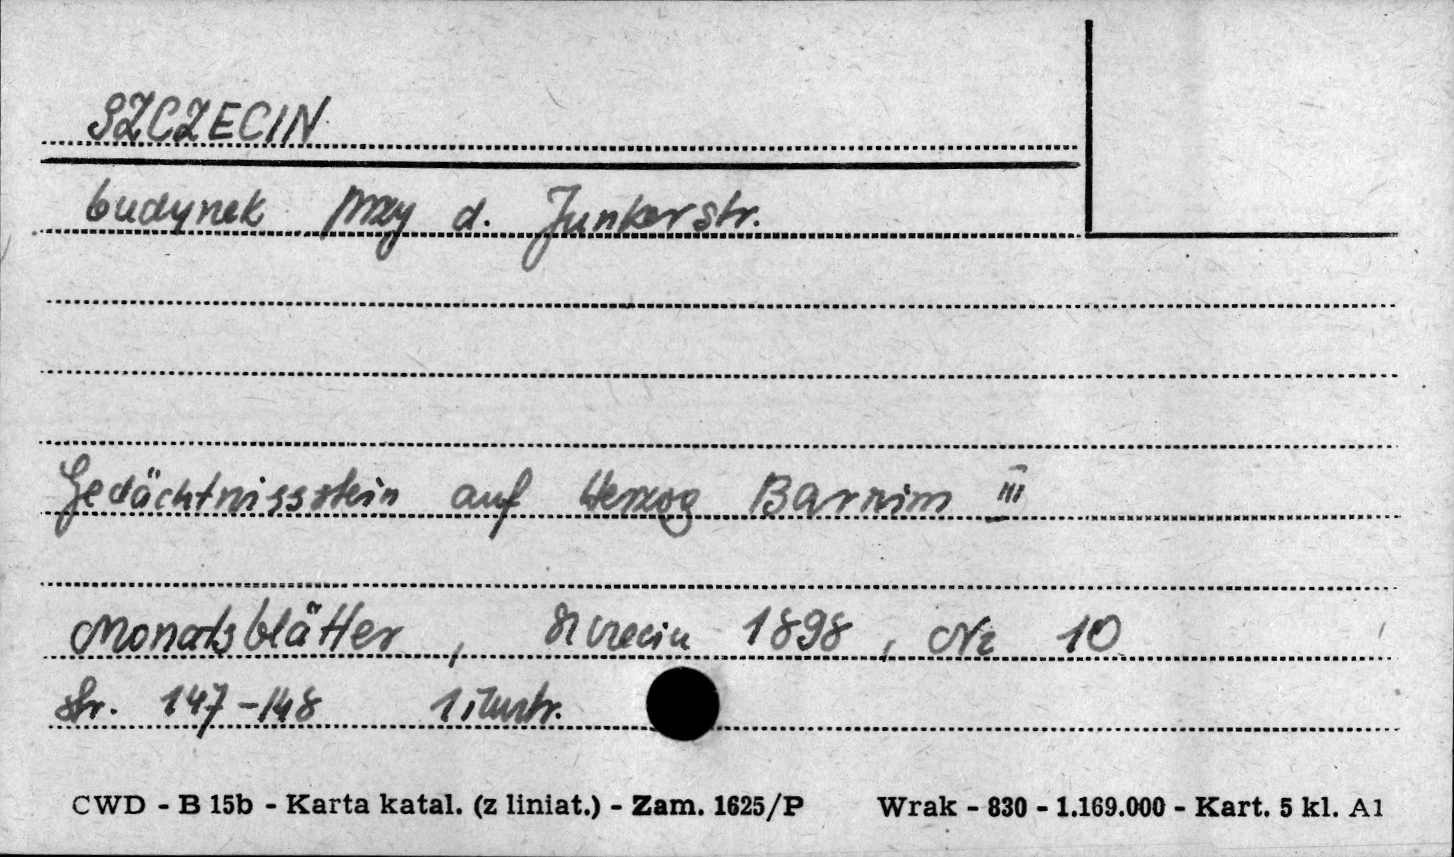 SZCZECIN
budynek przy d. Junkerstr.
Gedächtnisstein auf Herzog Barnim III
Monatsblätter, Szczecin 1898, Nr 10
Str. 147-148 1 ilustr.
CWD - B 15b - Karta katal. (z liniat.) - Zam. 1625/P Wrak - 830 - 1.169.000 - Kart. 5 kl. A1